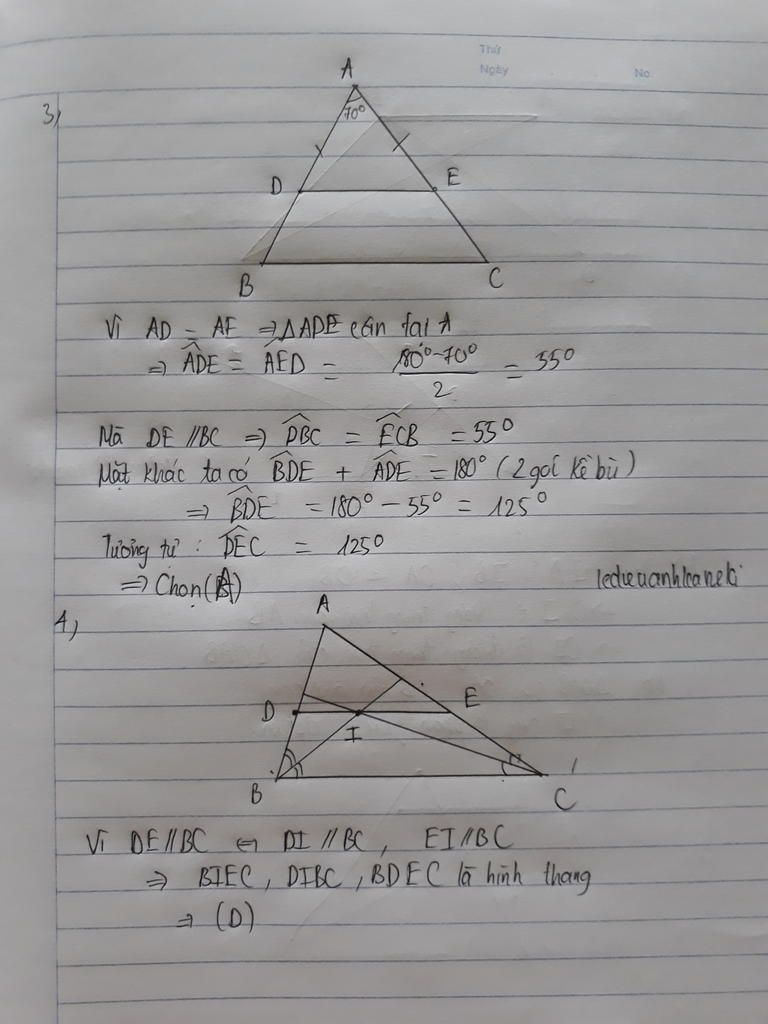 Thứ
Ngày No
3,
A
70°
D E
B C
Vì AD = AE ⇒ ΔADE cân tại A
⇒ ADE = AED = 180° - 70° / 2 = 55°
Mà DE // BC ⇒ DBC = ECB = 55°
Mặt khác ta có BDE + ADE = 180° (2 góc kề bù)
⇒ BDE = 180° - 55° = 125°
Tương tự : DEC = 125°
⇒ Chọn (A)
4,
A
D E
I
B C
Vì DE // BC ⇔ DI // BC, EI // BC
⇒ BIEC, DIBC, BDEC là hình thang
⇒ (D)